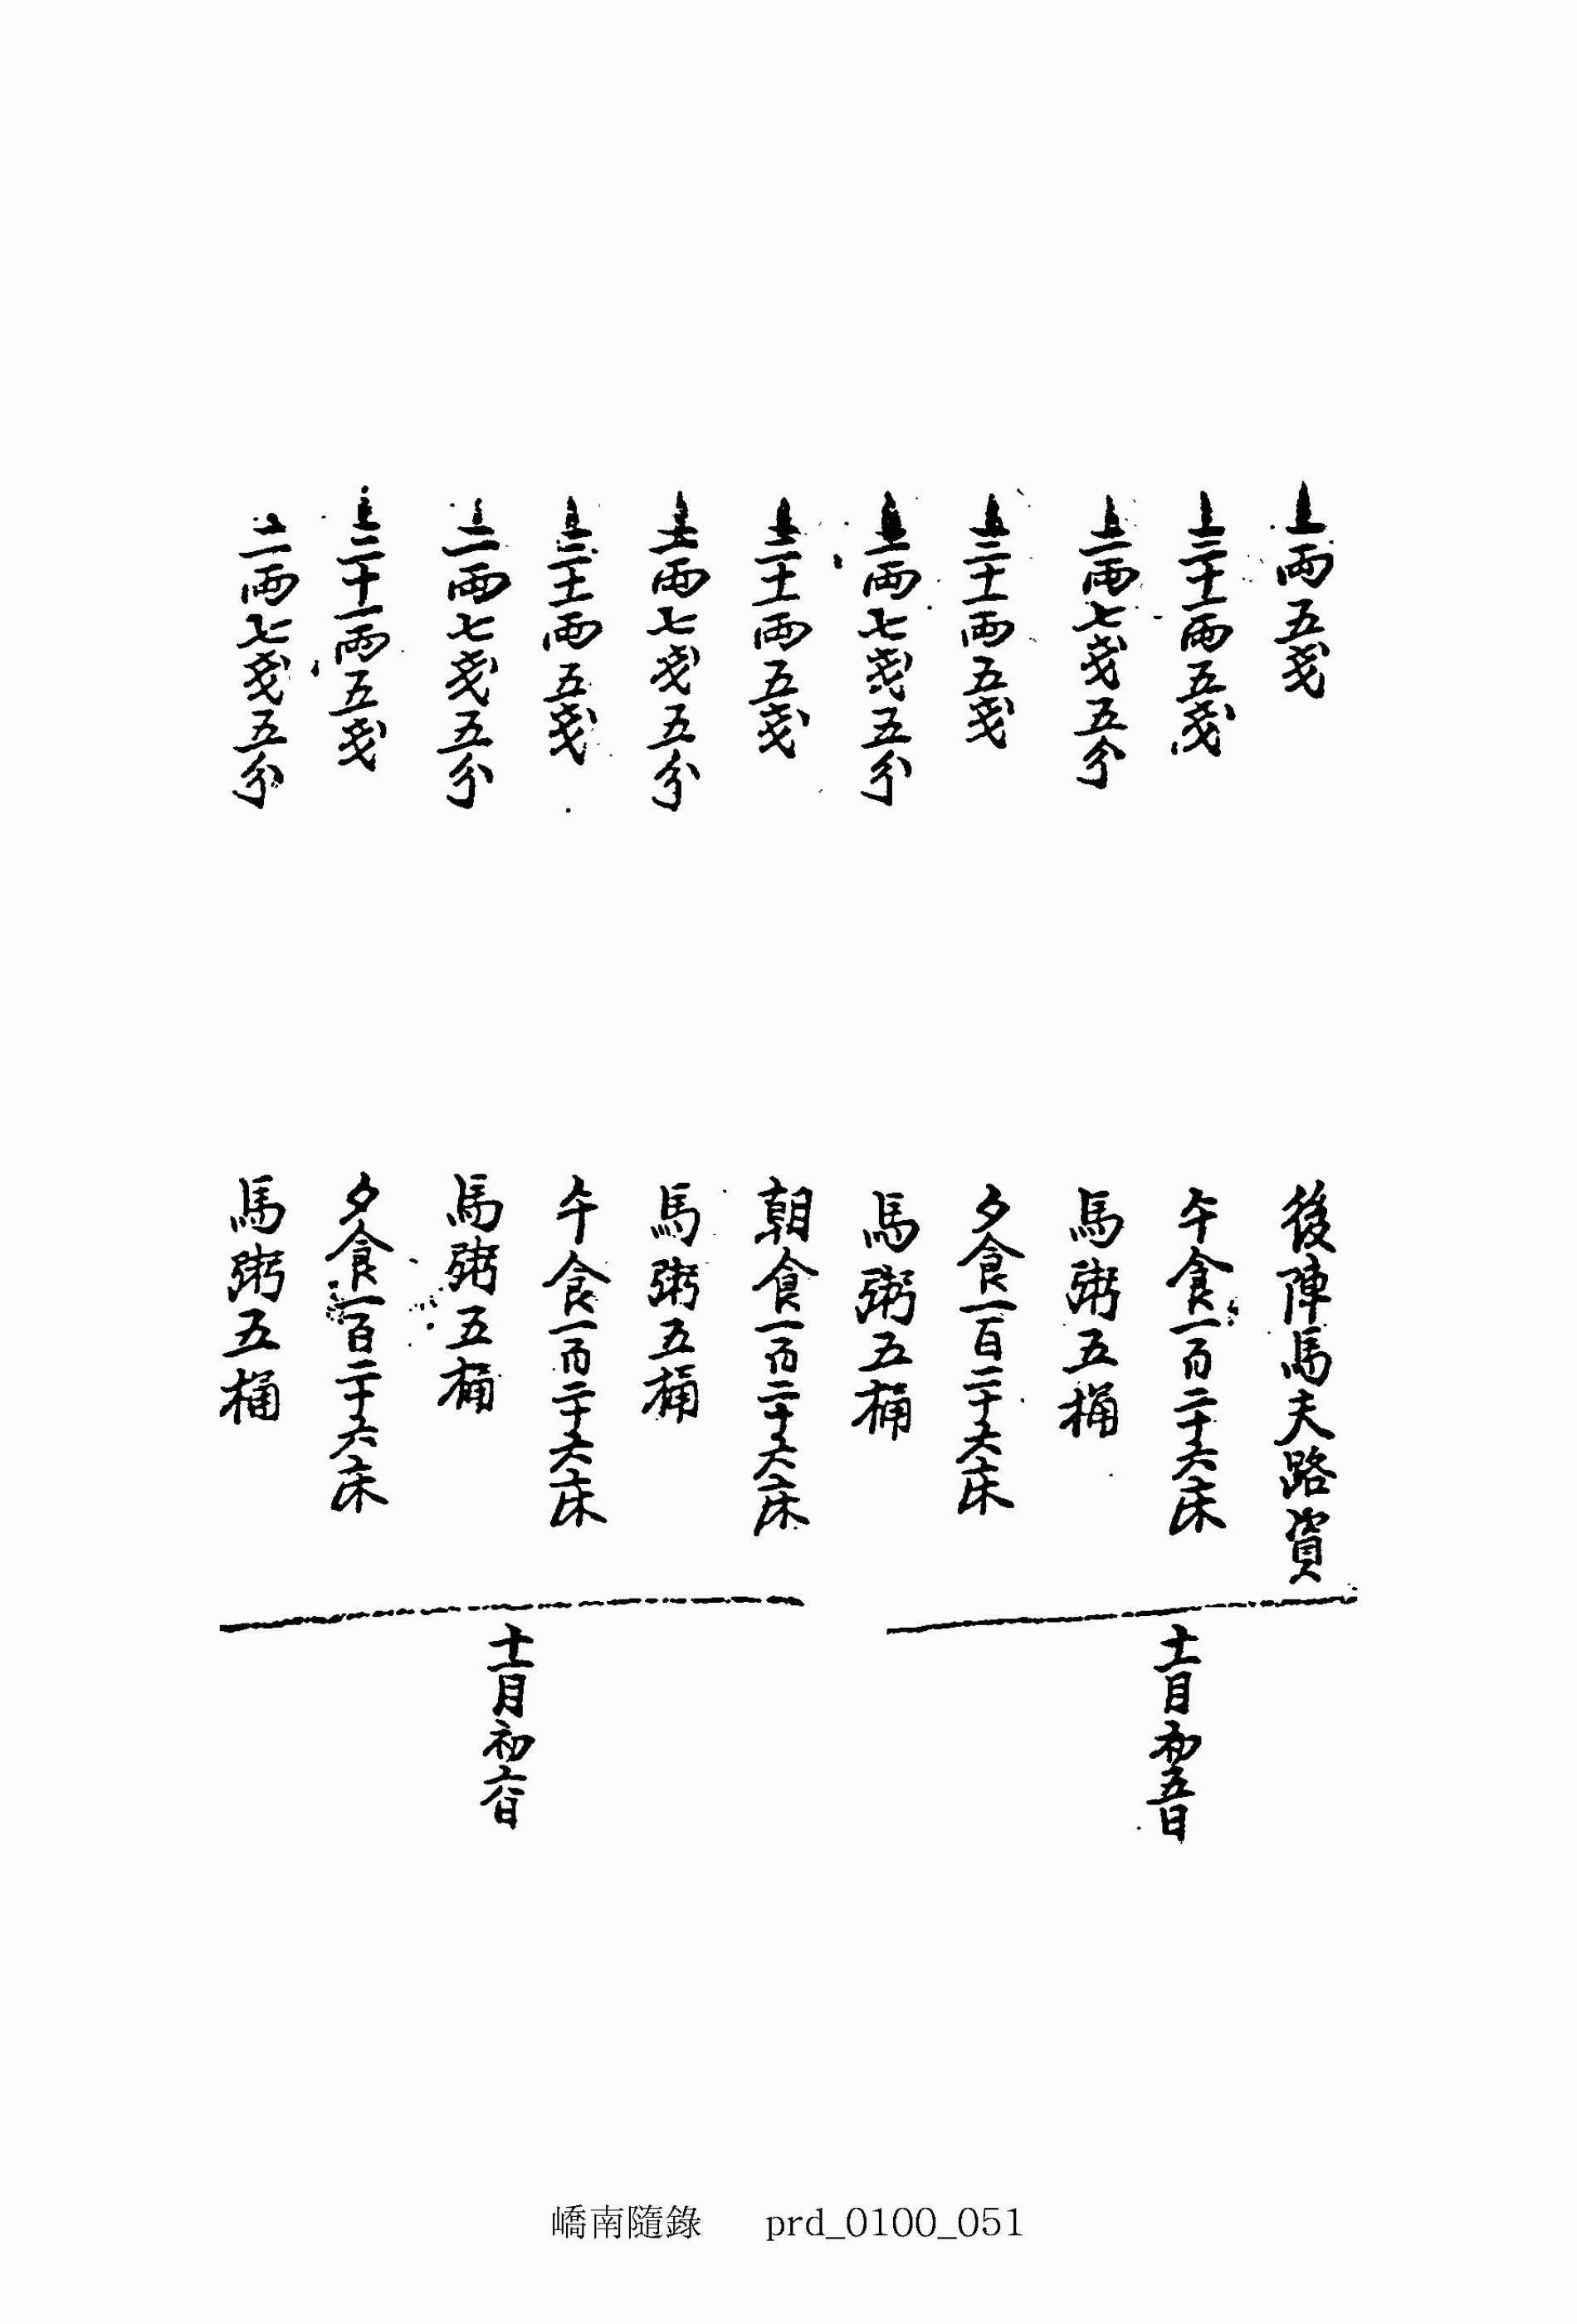 一両五戔
後陣馬夫路資
三十一両五戔
午食一百二十六床
二両七戔五分
馬粥五桶
三十一両五戔
夕食一百二十六床
二両七戔五分
馬粥五桶
十一月初五日
三十一両五戔
朝食一百二十六床
二両七戔五分
馬粥五桶
三十一両五戔
午食一百二十六床
二両七戔五分
馬粥五桶
三十一両五戔
夕食一百二十六床
二両七戔五分
馬粥五桶
十一月初六日
嶠南隨錄 prd_0100_051